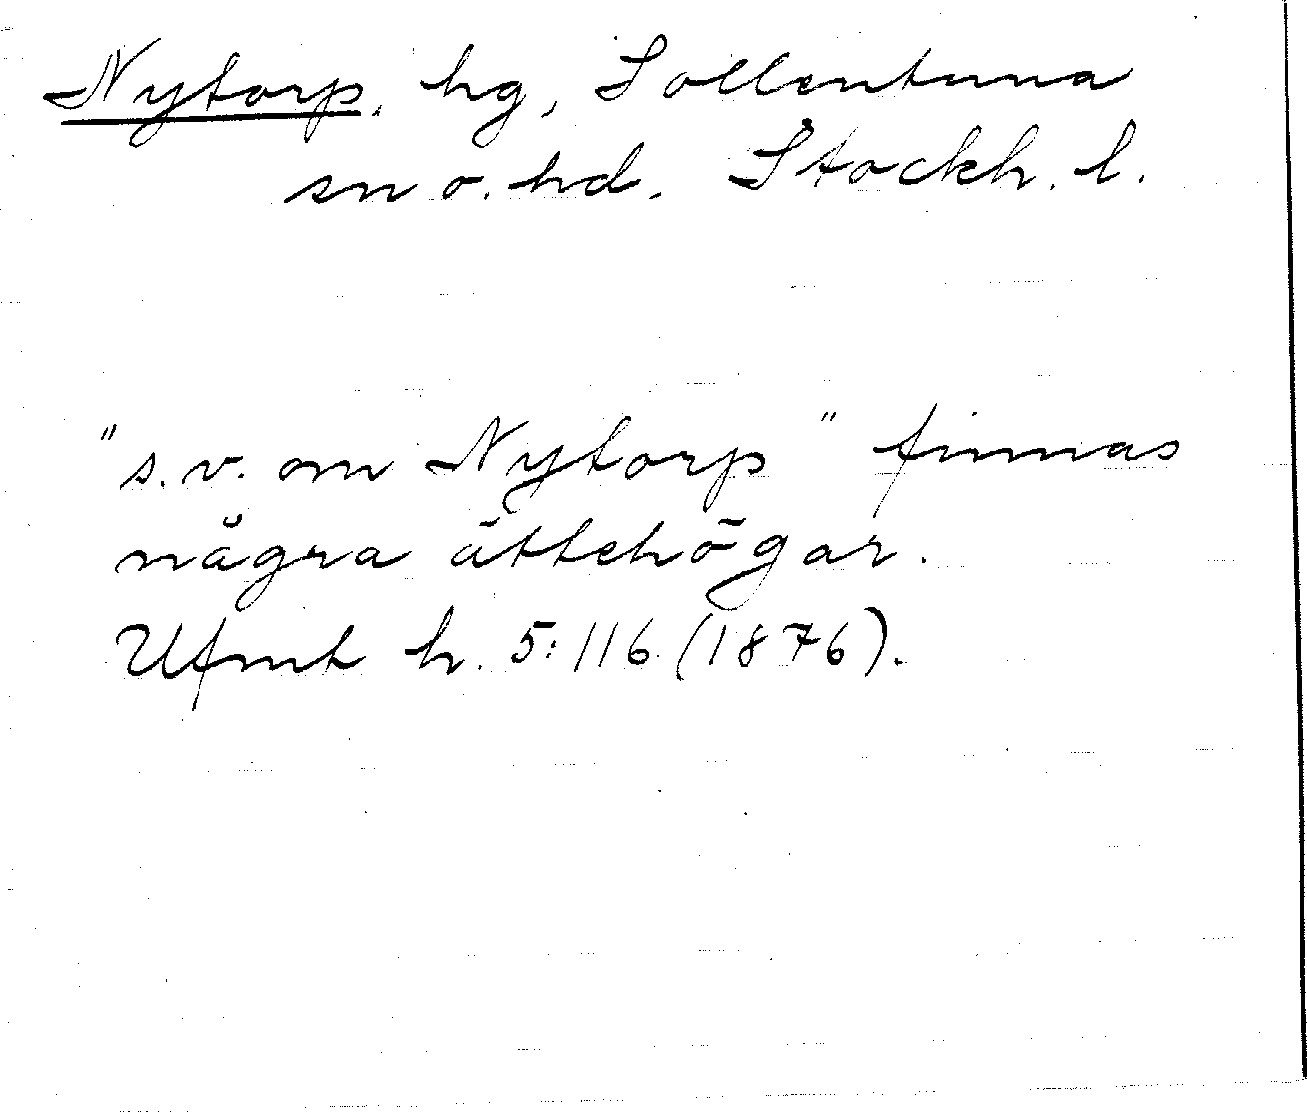 Nytorp, hg, Sollentuna
sn o. hd. Stockh. l.
"s.v. om Nytorp" finnas
några ättehögar.
Ufmt h. 5:116 (1876).